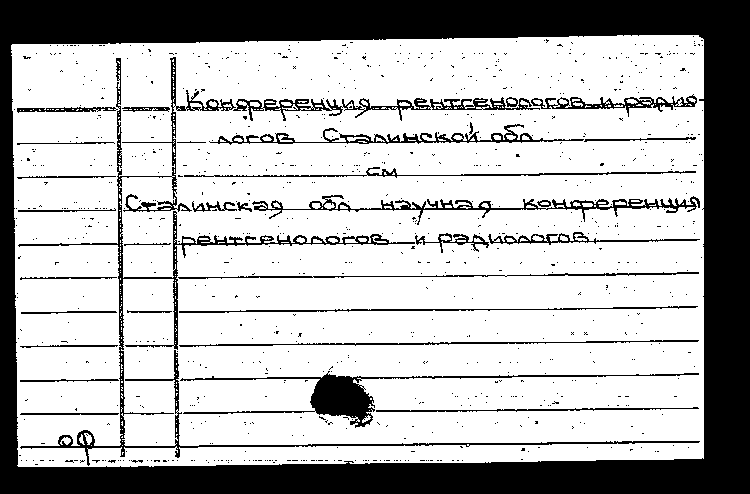 Конференция рентгенологов и радио-
логов Сталинской обл.
см
Сталинская обл. научная конференция
рентгенологов и радиологов.
оф